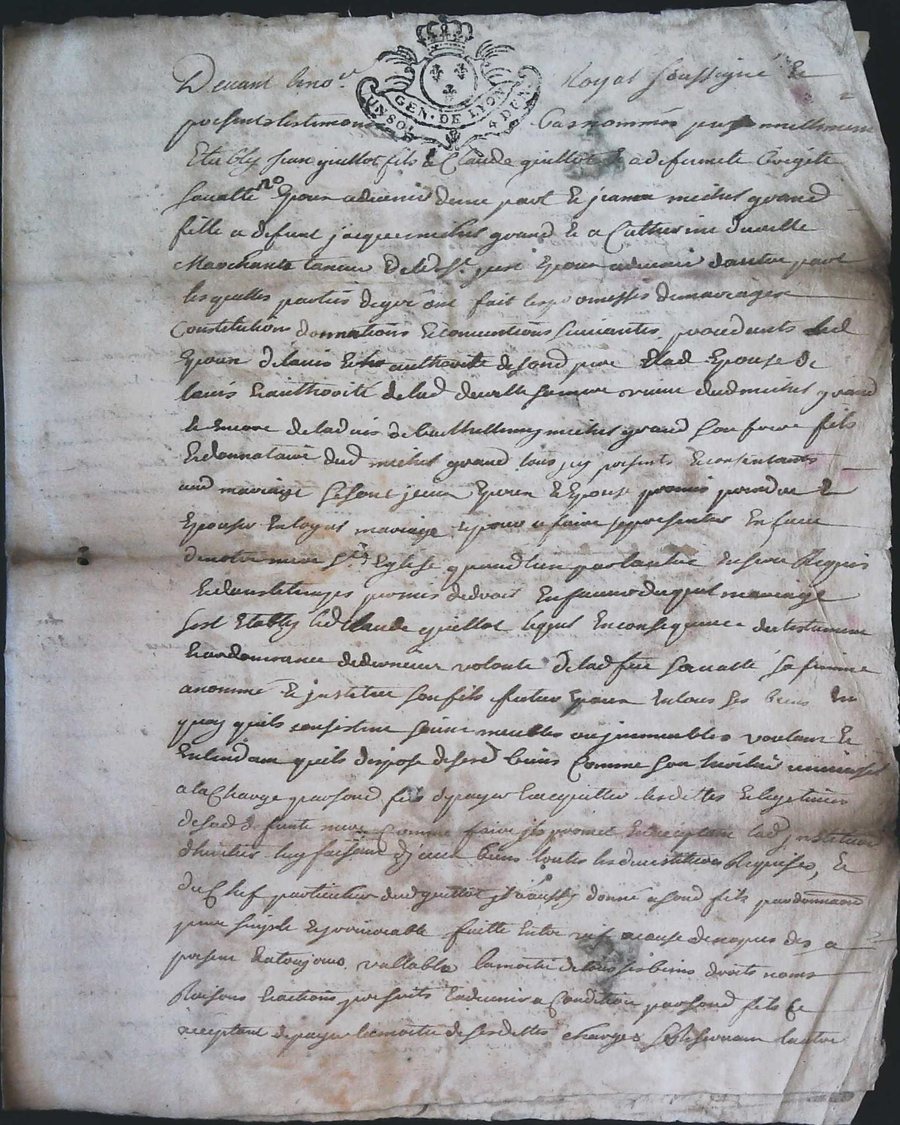 Devant le nore Royal soussigné &
GEN · DE LYON
UN SOL 4 DEN.
présents les témoins bas nommés personnellement
Etably Jean guillot fils à Claude guillot & a defuncte
Epoux advenir dune part & jeanne michel grand
fille a defunt jacques michel grand & a Catherine deville
Marchants epoux advenir dautre part
lesquelles parties de gré ont fait les promesses de mariage
Constitutions donnations & conventions suivantes procedants led
Epoux de lavis & authorité de sond pere & lad Epouse de
lavis & authorité de lad deville sa mere veuve dud michel grand
& encore de ladvis de Barthellemy michel grand son frere fils
& donnataire dud michel grand tous icy presents & consentants
aud mariage se sont Epoux & Epouse promis prendre &
Epouser en loyal mariage & pour ce faire se presenter En face
de notre mere Ste Eglise quand lun par lautre en sera Requis
& dans le temps permis de droit En faveur duquel mariage
sest Etably led Claude guillot lequel En consequence du testament
& ordonnance de derniere volonté de lad feue sa femme
a nommé & institué son fils futur Epoux En tous ses biens En
quoy quils consistent soient meubles ou immeubles voulant &
Entendant quils dispose desd biens Comme son heritier universel
a la Charge par sond fils de payer & acquitter les dettes & legitimes
de lad defunte mere Comme faire il promet En acceptant lad institution
dheritier luy faisant biens toutes les Requises, &
du Chef particulier dud guillot il a aussy donné a sond fils par donnation
pure simple & irrevocable faitte Entre vifs a cause de noces des a
present & a toujours vallable la moitié de tous ses biens droits noms
Raisons & actions presents & advenir a Condition par sond fils Ce
acceptant de payer la moitié de ses dettes charges se reservant lautre